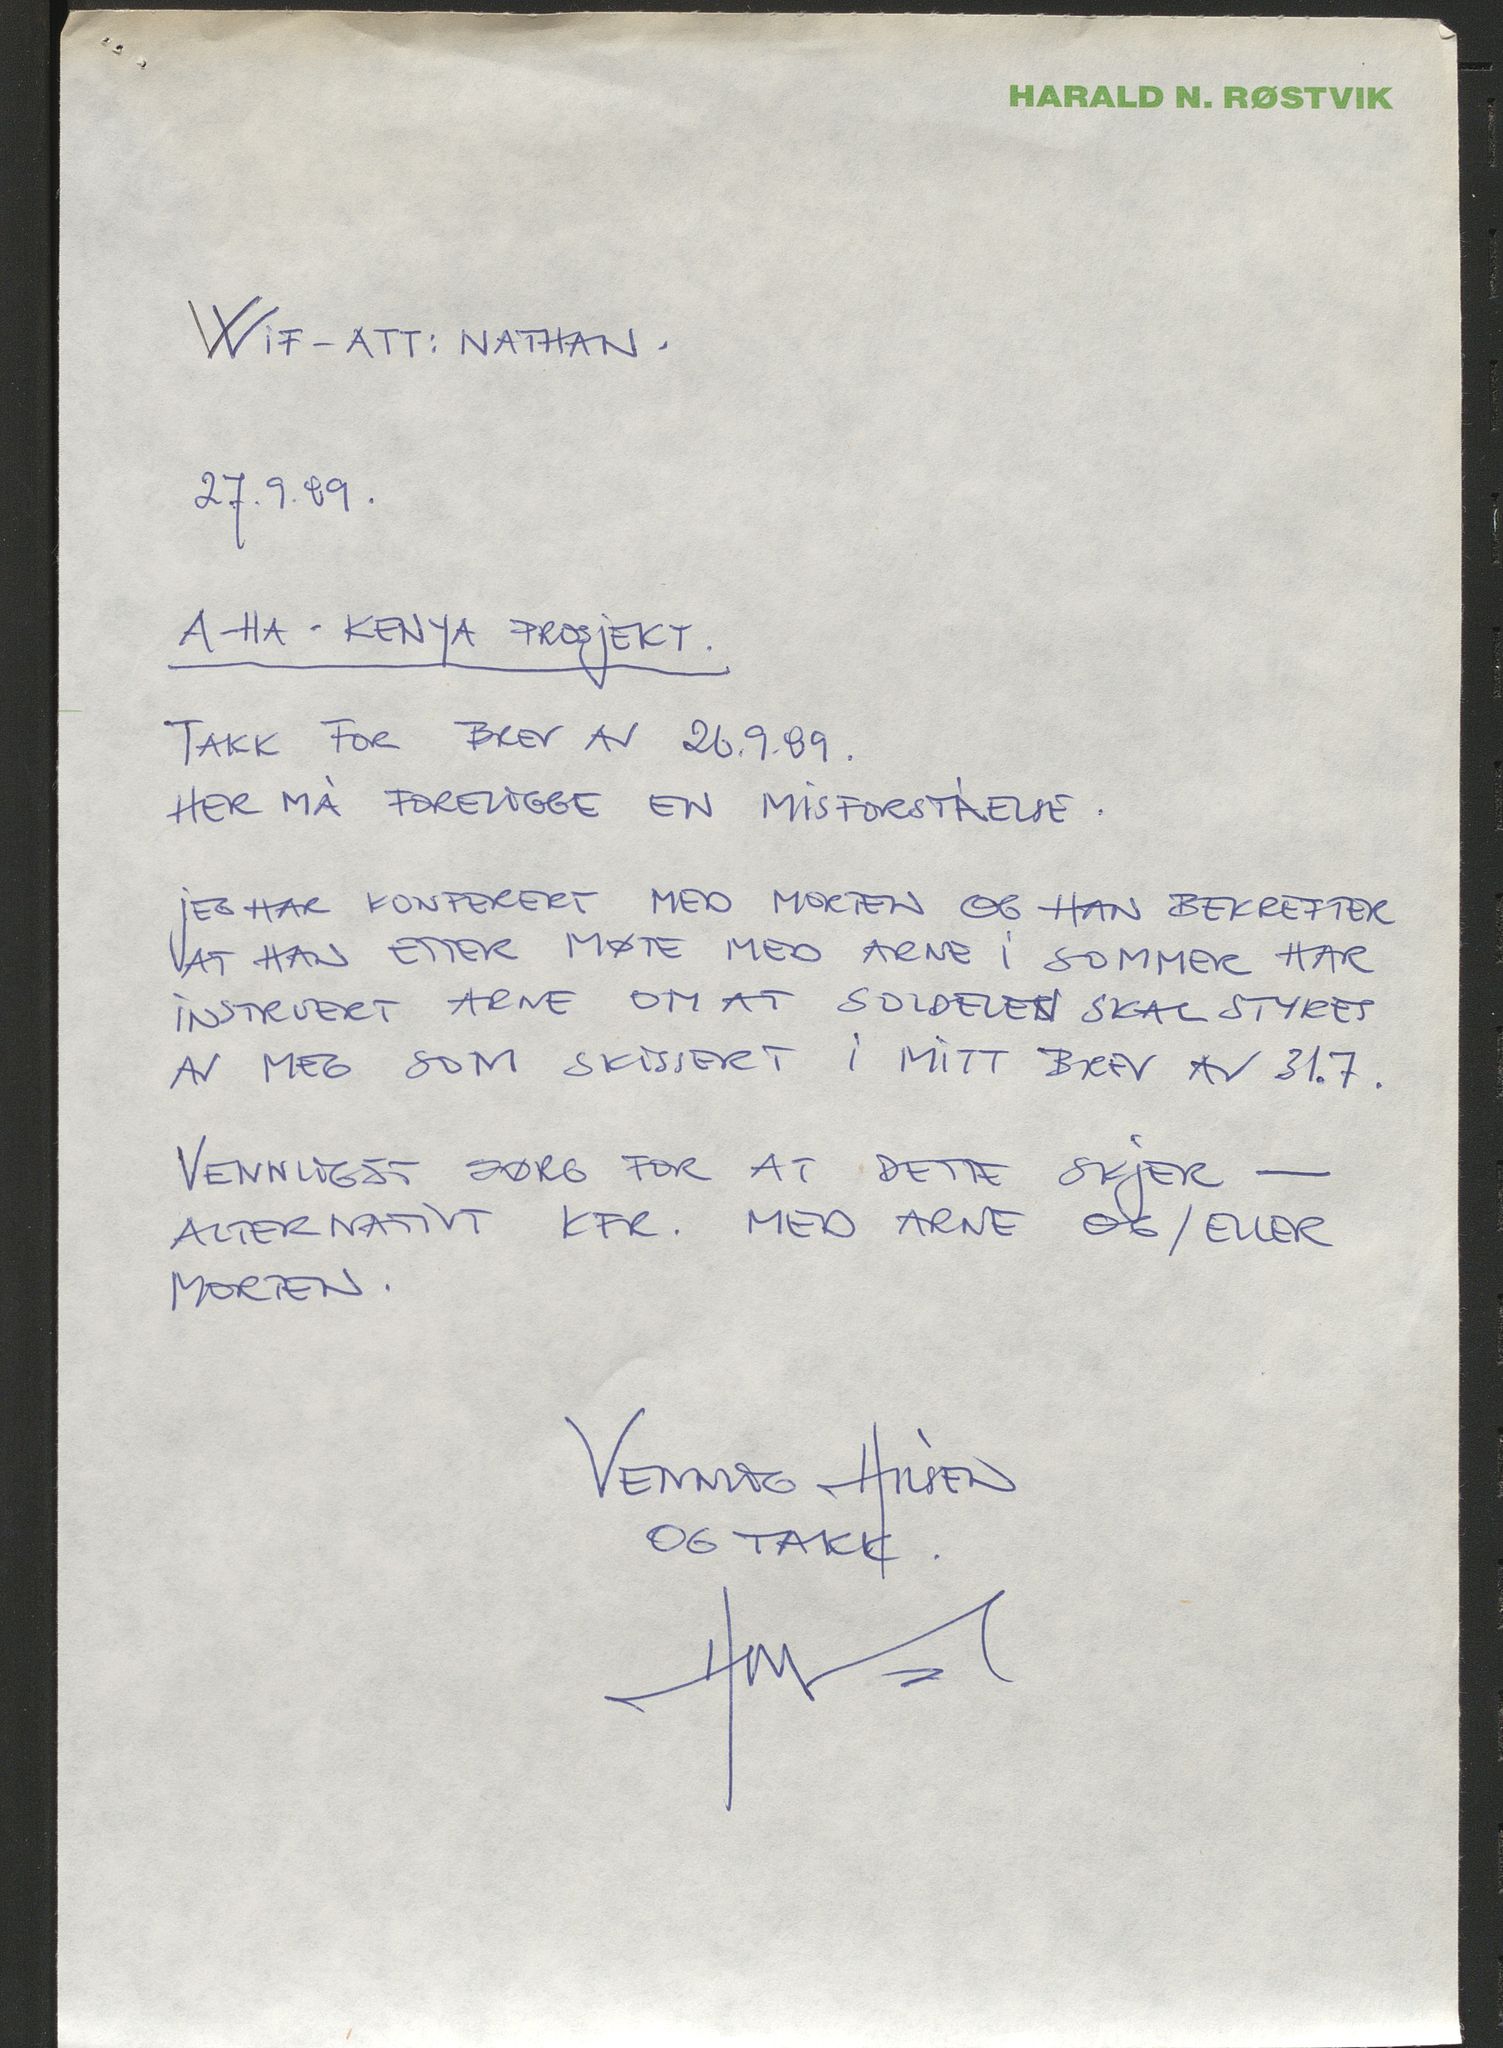 HARALD N. RØSTVIK
WIF - ATT: NATHAN.
27.9.89.
A-HA - KENYA PROSJEKT.
TAKK FOR BREV AV 26.9.89.
HER MÅ FORELIGGE EN MISFORSTÅELSE.
JEG HAR KONFERERT MED MORTEN OG HAN BEKREFTER
AT HAN ETTER MØTE MED ARNE I SOMMER HAR
INSTRUERT ARNE OM AT SOLDELEN SKAL STYRES
AV MEG SOM SKISSERT I MITT BREV AV 31.7.
VENNLIGST SØRG FOR AT DETTE SKJER —
ALTERNATIVT KFR. MED ARNE OG/ELLER
MORTEN.
VENNLIG HILSEN
OG TAKK.